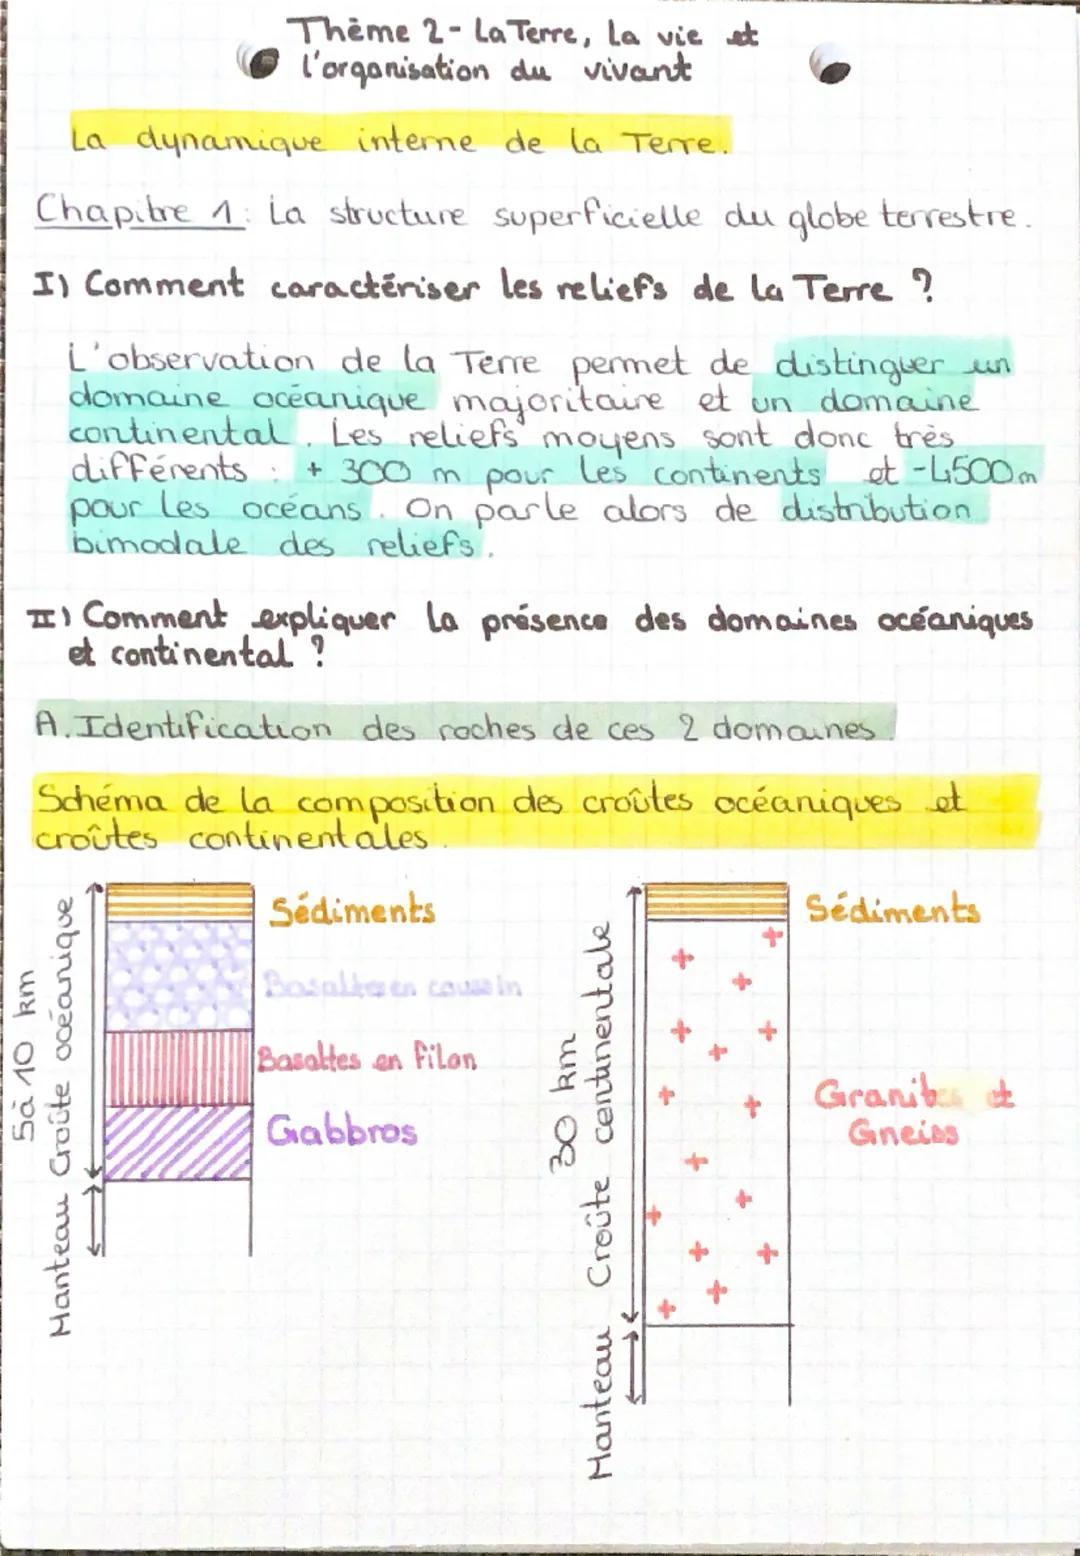 Thème 2 - La Terre, la vie et
l'organisation du vivant
La dynamique interne de la Terre.
Chapitre 1 : La structure superficielle du globe terrestre.
I) Comment caractériser les reliefs de la Terre ?
L'observation de la Terre permet de distinguer un
domaine océanique majoritaire et un domaine
continental. Les reliefs moyens sont donc très
différents : + 300 m pour les continents et -4500m
pour les océans. On parle alors de distribution
bimodale des reliefs.
II) Comment expliquer la présence des domaines océaniques
et continental ?
A. Identification des roches de ces 2 domaines.
Schéma de la composition des croûtes océaniques et
croûtes continentales.
5 à 10 km
Croûte océanique
Manteau
Sédiments
Basaltes en coussin
Basaltes en filon
Gabbros
30 km
Croûte contunentale
Manteau
Sédiments
Granites et
Gneiss